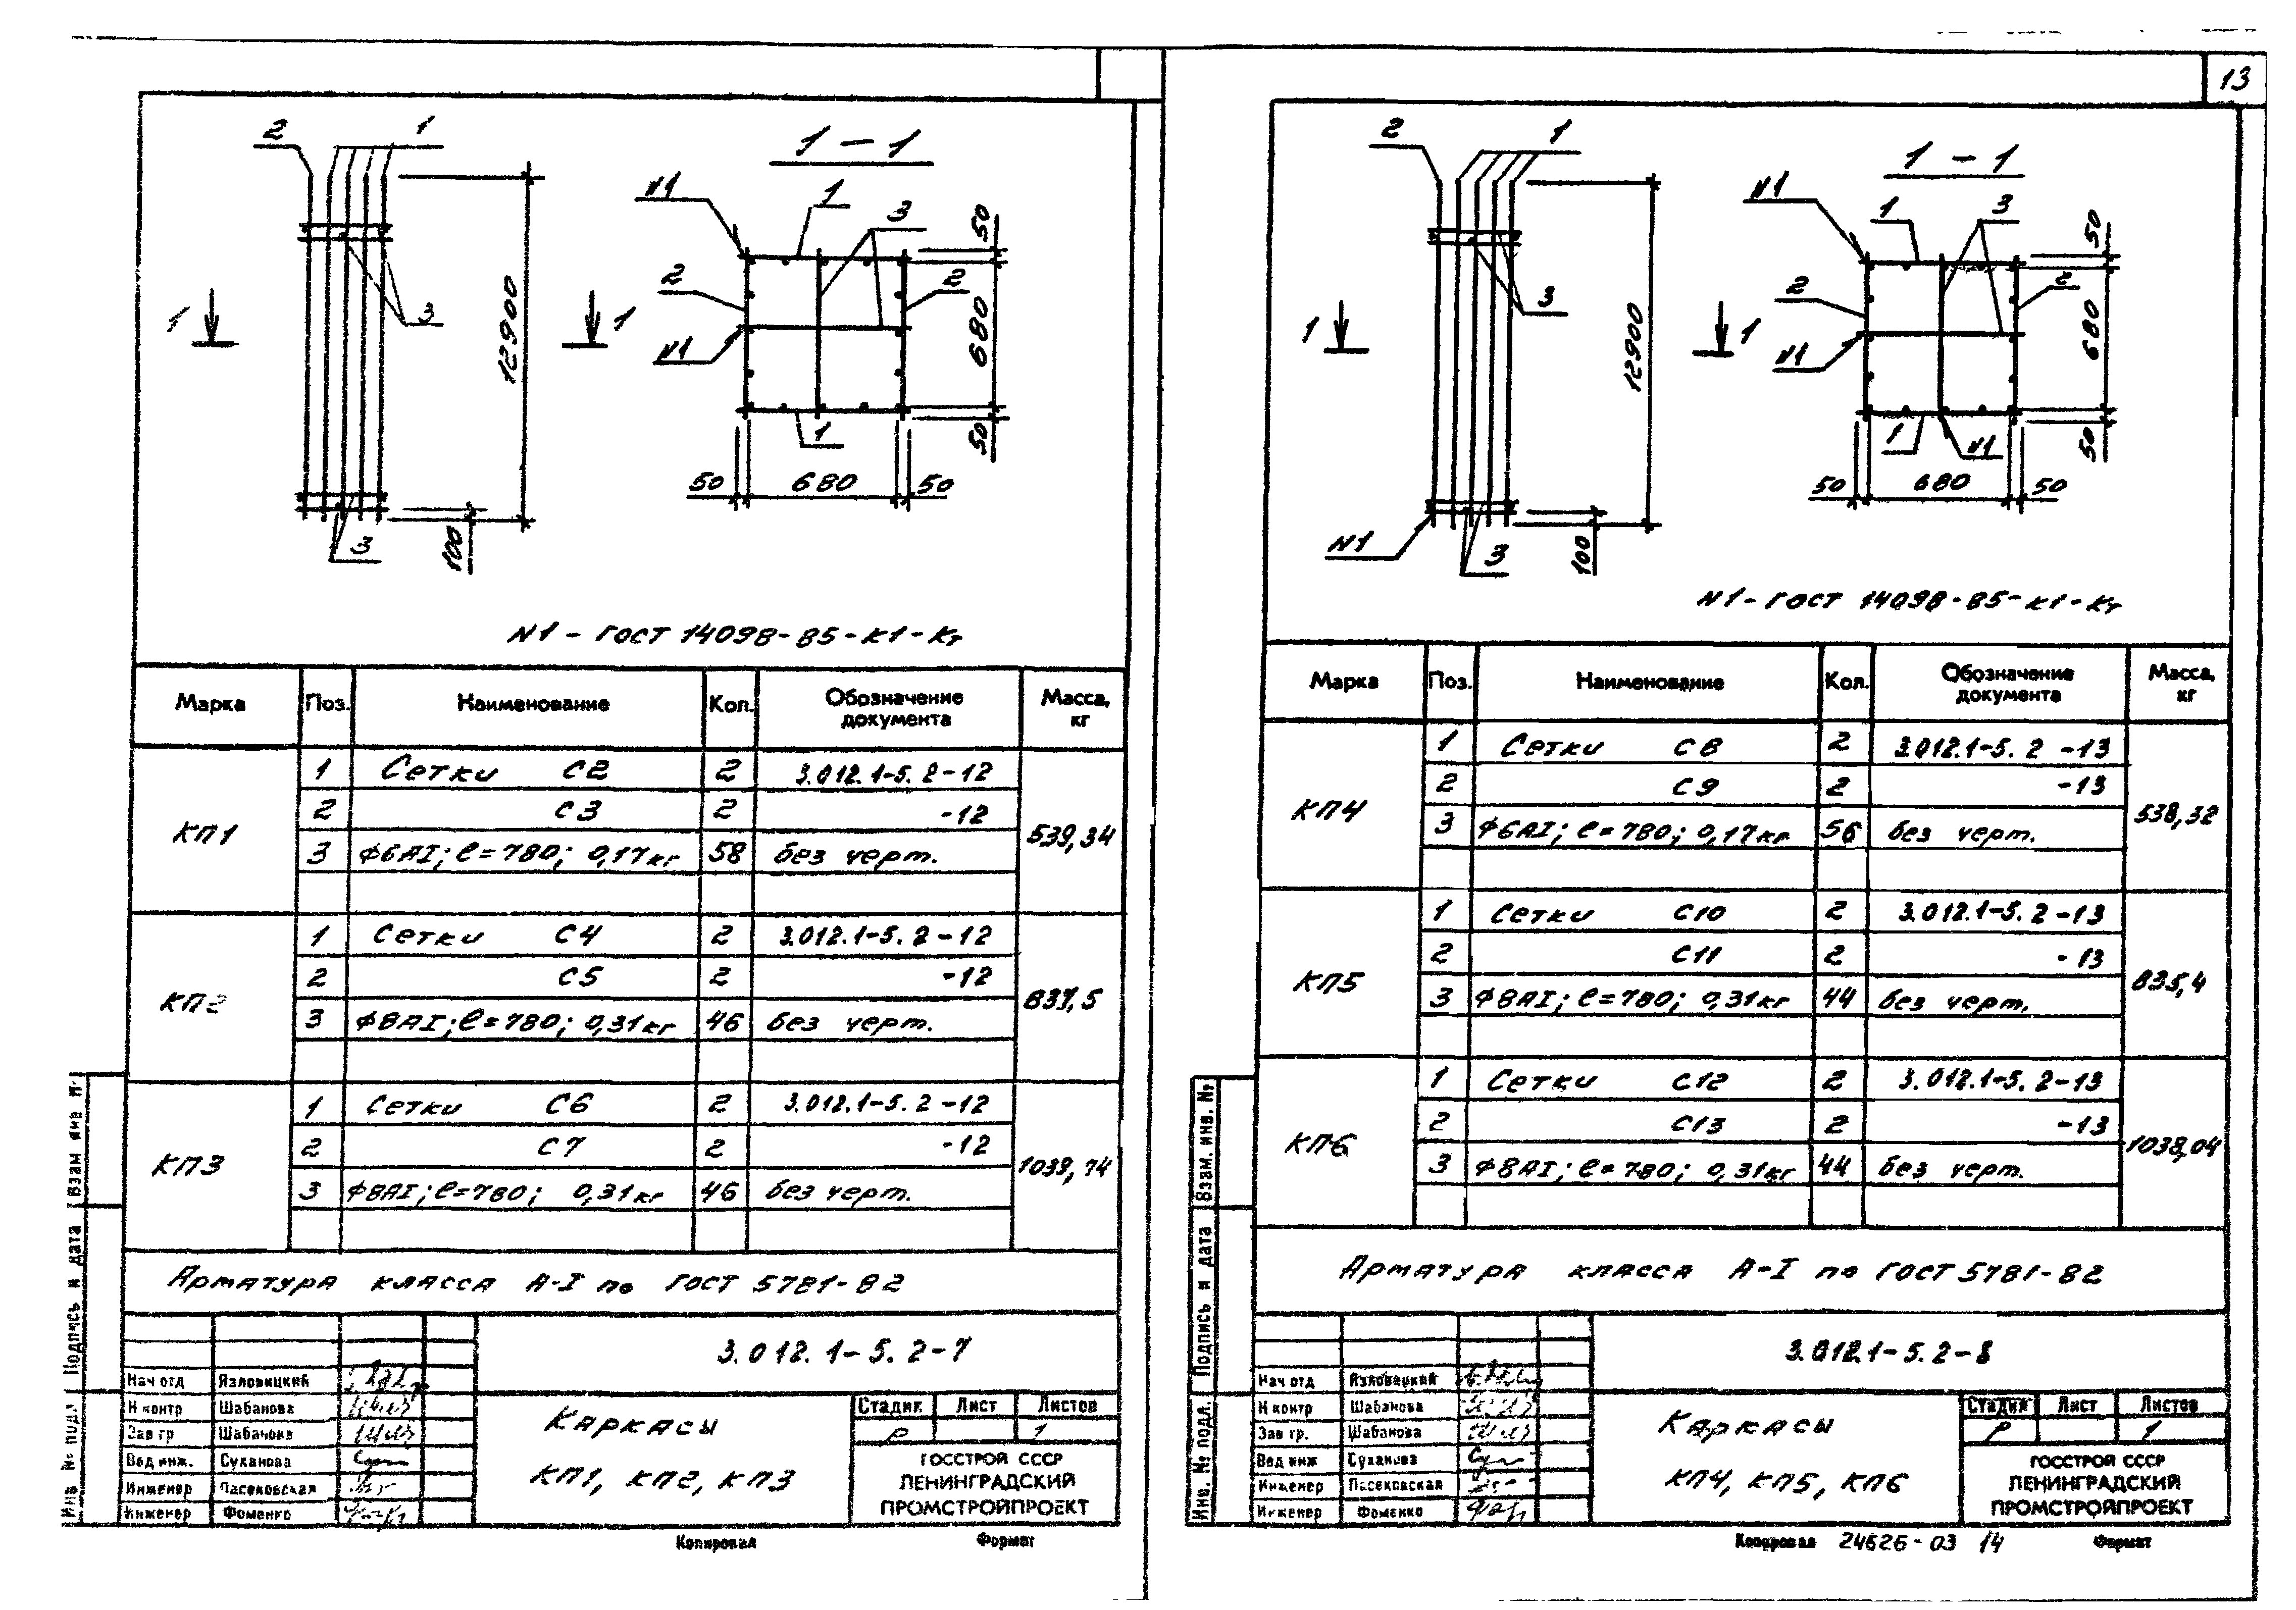 13
2 1
1 - 1
N1
1
3
50
2
2
3
1
1
12900
680
N1
1
50
50 680 50
3
100
N1 - ГОСТ 14098-85-К1-Кт
Марка Поз. Наименование Кол. Обозначение документа Масса, кг
КП1
1 Сетки С2 2 3.012.1-5.2-12
2 С3 2 -12
3 ф6АI; ℓ=780; 0,17кг 58 без черт.
539,34
КП2
1 Сетки С4 2 3.012.1-5.2-12
2 С5 2 -12
3 ф8АI; ℓ=780; 0,31кг 46 без черт.
837,5
КП3
1 Сетки С6 2 3.012.1-5.2-12
2 С7 2 -12
3 ф8АI; ℓ=780; 0,31кг 46 без черт.
1039,74
Арматура класса А-I по ГОСТ 5781-82
3.012.1-5.2-7
Нач отд Язловицкий
Н контр Шабанова
Зав гр Шабанова
Вед инж. Суханова
Инженер Пасековская
Инженер Фоменко
Каркасы
КП1, КП2, КП3
Стадия Лист Листов
Р 1
ГОССТРОЙ СССР
ЛЕНИНГРАДСКИЙ
ПРОМСТРОЙПРОЕКТ
Копировал Формат
Инв № подл Подпись и дата Взам инв №
2 1
1 - 1
N1
1
3
50
2
2
3
1
1
12900
680
N1
1
N1
50
50 680 50
N1
3
100
N1 - ГОСТ 14098-85-К1-Кт
Марка Поз. Наименование Кол. Обозначение документа Масса, кг
КП4
1 Сетки С8 2 3.012.1-5.2-13
2 С9 2 -13
3 ф6АI; ℓ=780; 0,17кг 56 без черт.
538,32
КП5
1 Сетки С10 2 3.012.1-5.2-13
2 С11 2 -13
3 ф8АI; ℓ=780; 0,31кг 44 без черт.
835,4
КП6
1 Сетки С12 2 3.012.1-5.2-13
2 С13 2 -13
3 ф8АI; ℓ=780; 0,31кг 44 без черт.
1038,04
Арматура класса А-I по ГОСТ 5781-82
3.012.1-5.2-8
Нач отд Язловицкий
Н контр Шабанова
Зав гр. Шабанова
Вед инж Суханова
Инженер Пасековская
Инженер Фоменко
Каркасы
КП4, КП5, КП6
Стадия Лист Листов
Р 1
ГОССТРОЙ СССР
ЛЕНИНГРАДСКИЙ
ПРОМСТРОЙПРОЕКТ
Копировал 24626-03 14 Формат
Инв. № подл. Подпись и дата Взам. инв. №